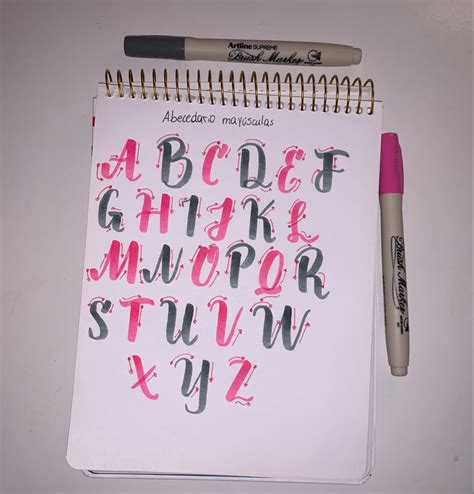 Artline SUPREME
Brush Marker
Abecedario mayúsculas
A B C D E F
G H I J K L
M N O P Q R
S T U V W
X Y Z
Brush Marker